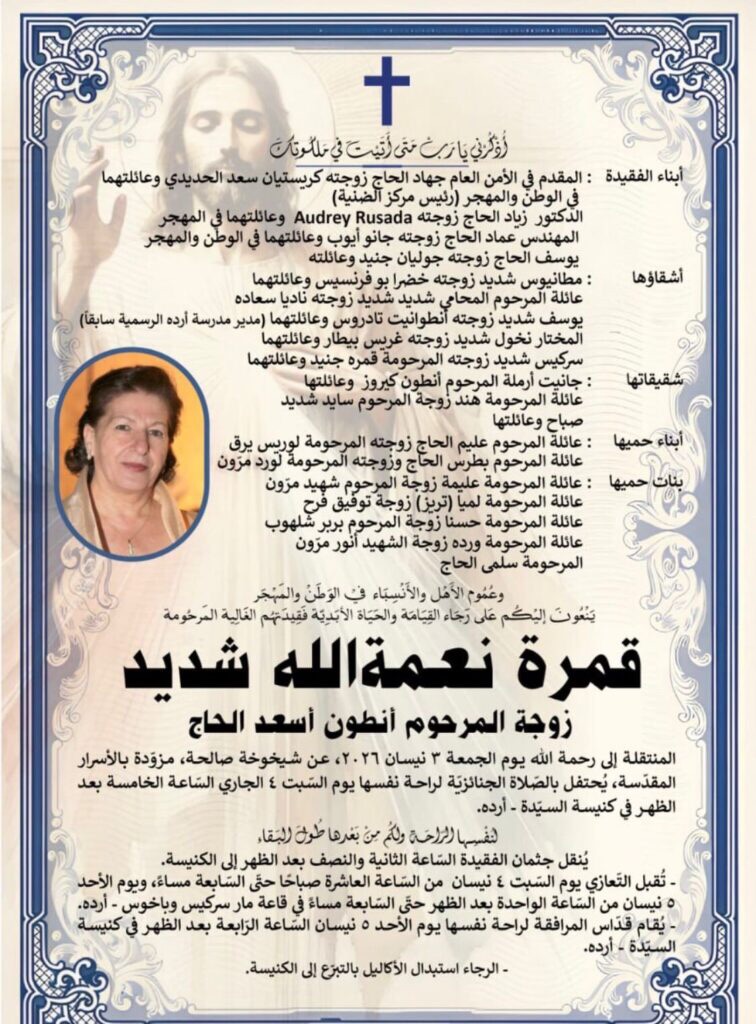 أُذكُرني يَا رَبّ مَتَى أَتَيْتَ فِي مَلَكُوتِكَ
أبناء الفقيدة : المقدم في الأمن العام جهاد الحاج زوجته كريستيان سعد الحديدي وعائلتهما
في الوطن والمهجر (رئيس مركز الضنية)
الدكتور زياد الحاج زوجته Audrey Rusada وعائلتهما في المهجر
المهندس عماد الحاج زوجته جانو أيوب وعائلتهما في الوطن والمهجر
يوسف الحاج زوجته جوليان جنيد وعائلته
أشقاؤها : مطانيوس شديد زوجته خضرا بو فرنسيس وعائلتهما
عائلة المرحوم المحامي شديد شديد زوجته ناديا سعاده
يوسف شديد زوجته أنطوانيت تادروس وعائلتهما (مدير مدرسة أرده الرسمية سابقاً)
المختار نخول شديد زوجته غريس بيطار وعائلتهما
سركيس شديد زوجته المرحومة قمره جنيد وعائلتهما
شقيقاتها : جانيت أرملة المرحوم أنطون كيروز وعائلتها
عائلة المرحومة هند زوجة المرحوم سايد شديد
صباح وعائلتها
أبناء حميها : عائلة المرحوم عليم الحاج زوجته المرحومة لوريس يرق
عائلة المرحوم بطرس الحاج وزوجته المرحومة لورد مرّون
بنات حميها : عائلة المرحومة عليمة زوجة المرحوم شهيد مرّون
عائلة المرحومة لميا (تريز) زوجة توفيق فرح
عائلة المرحومة حسنا زوجة المرحوم بربر شلهوب
عائلة المرحومة ورده زوجة الشهيد أنور مرّون
المرحومة سلمى الحاج
وعُمُوم الأَهْل والأَنْسِبَاء في الوَطَنْ والمَهْجَر
يَنْعُونَ إلَيْكُم عَلَى رَجَاء القِيَامَة والحَيَاة الأَبَدِيَّة فَقِيدَتَهُم الغَالِية المَرحُومة
قمرة نعمةالله شديد
زوجة المرحوم أنطون أسعد الحاج
المنتقلة إلى رحمة الله يوم الجمعة ٣ نيسان ٢٠٢٦، عن شيخوخة صالحة، مزوّدة بالأسرار
المقدّسة، يُحتفل بالصّلاة الجنائزيّة لراحة نفسها يوم السّبت ٤ الجاري السّاعة الخامسة بعد
الظهر في كنيسة السيّدة - أرده.
لنفْسِها الرَّاحَة ولكُم مِنْ بَعْدها طُولُ البَقَاء
يُنقل جثمان الفقيدة السّاعة الثانية والنصف بعد الظهر إلى الكنيسة.
- تُقبل التّعازي يوم السّبت ٤ نيسان من السّاعة العاشرة صباحًا حتّى السّابعة مساءً، ويوم الأحد
٥ نيسان من السّاعة الواحدة بعد الظهر حتّى السّابعة مساءً في قاعة مار سركيس وباخوس - أرده.
- يُقام قدّاس المرافقة لراحة نفسها يوم الأحد ٥ نيسان السّاعة الرّابعة بعد الظهر في كنيسة
السيّدة - أرده.
- الرجاء استبدال الأكاليل بالتبرّع إلى الكنيسة.